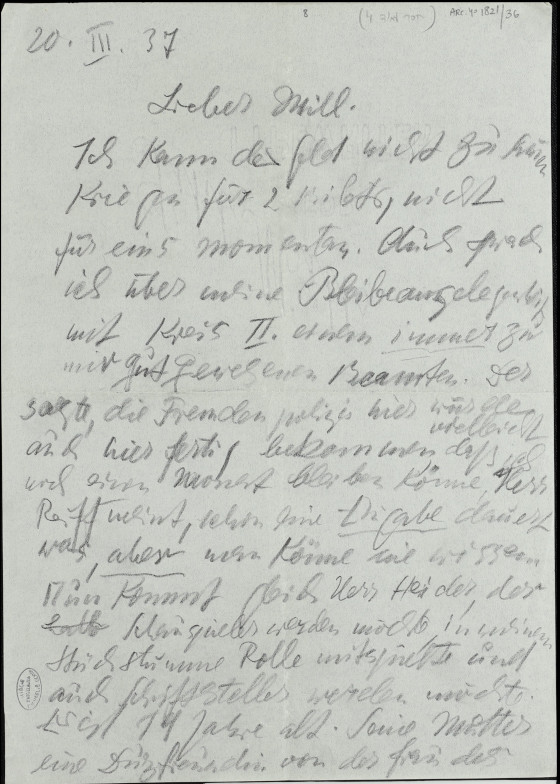 8
ARC. 4º 1821/36
20. III. 37
Lieber Mill.
Ich kann das Geld nicht zu
Kriegen für 2 nicht
für eins momentan. Auch sprach
ich über meine Bleibeangelegenheit
mit Kreis II. einem immer zu
mir gut gewesenen Beamten. Der
sagte, die Fremdenpolizei hier würde
vielleicht
auch hier fertig bekommen daß ich
noch einen Monat bleiben könne. Herr
meint, schon eine Eingabe dauert
was, aber man könne nie wissen
Nun kommt gleich Herr Heider, der
Schauspieler werden möchte, in meinem
Stück stumme Rolle mitspielte und
auch Schriftsteller werden möchte.
Er ist 19 Jahre alt. Seine Mutter
eine Duzfreundin von der Frau des